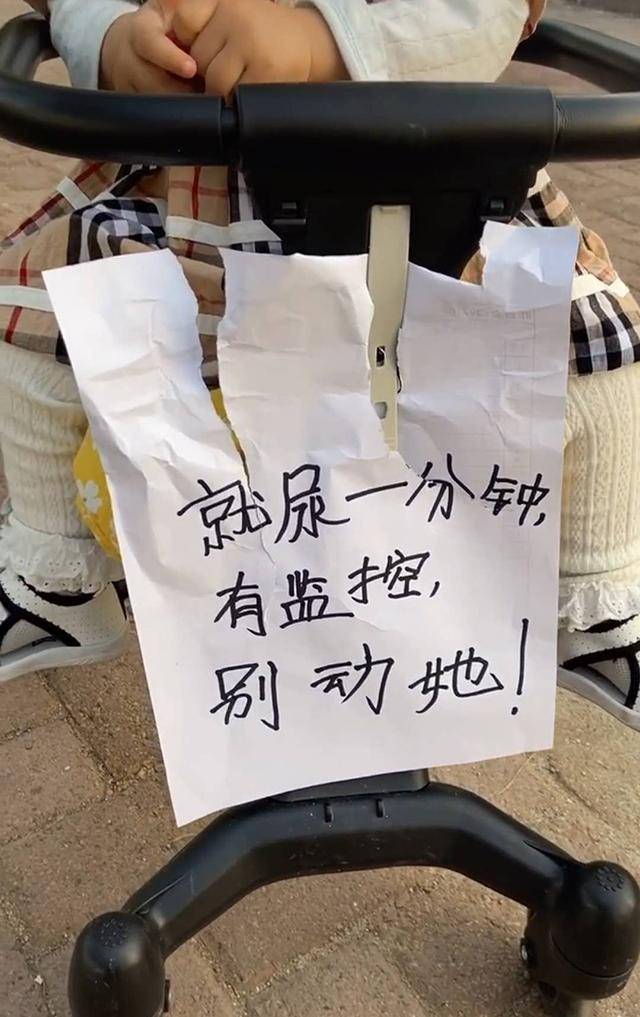 就尿一分钟,
有监控,
别动她!